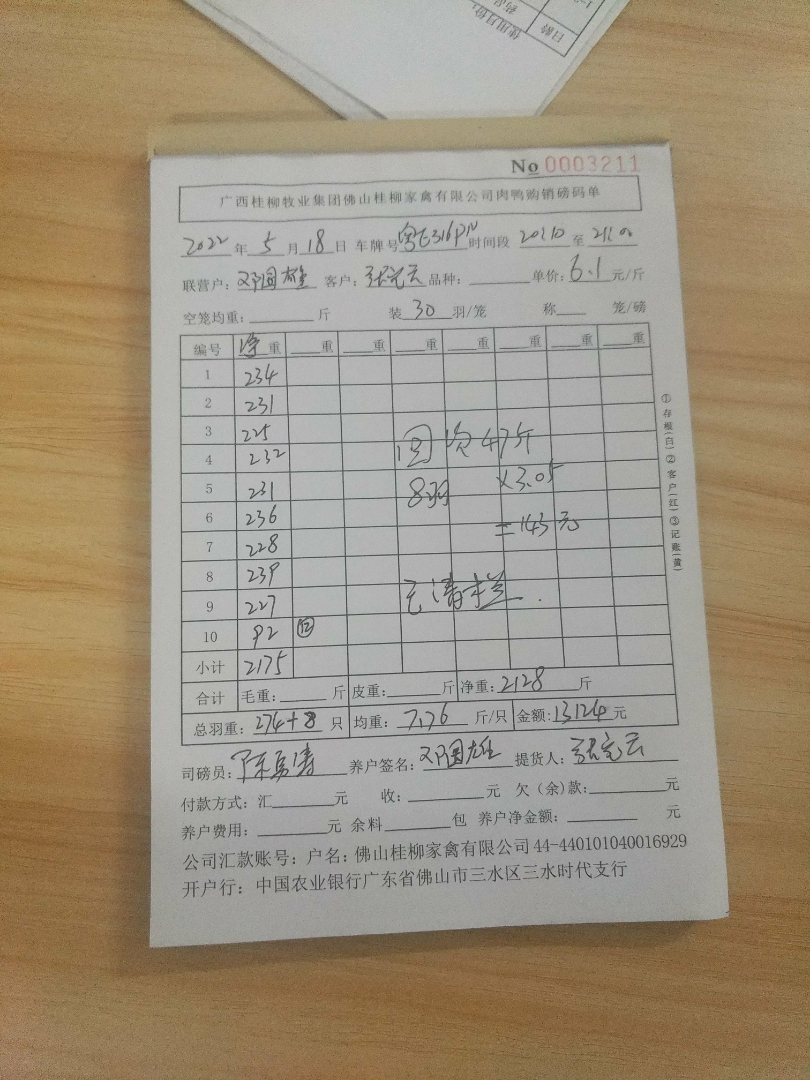 日龄
使用月份:
No 0003211
广西桂柳牧业集团佛山桂柳家禽有限公司肉鸭购销磅码单
2022 年 5 月 18 日 车牌号 粤E316PN 时间段 20:10 至 21:00
联营户: 邓国雄 客户: 张定云 品种: 单价: 6.1 元/斤
空笼均重: 斤 装 30 羽/笼 称 笼/磅
编号 净重 重 重 重 重 重 重 重
1 234
2 231
3 225
4 232
5 231
6 236
7 228
8 239
9 227
10 92 ⑫
小计 2175
次 47斤
8羽 ×3.05
=143元
已清栏.
合计 毛重: 斤 皮重: 斤 净重: 2128 斤
总羽重: 274+8 只 均重: 7.76 斤/只 金额: 13124 元
司磅员: 陈 涛 养户签名: 邓国雄 提货人: 张定云
付款方式: 汇 元 收: 元 欠(余)款: 元
养户费用: 元 余料 包 养户净金额: 元
公司汇款账号: 户名: 佛山桂柳家禽有限公司 44-440101040016929
开户行: 中国农业银行广东省佛山市三水区三水时代支行
①存根(白)②客户(红)③记账(黄)